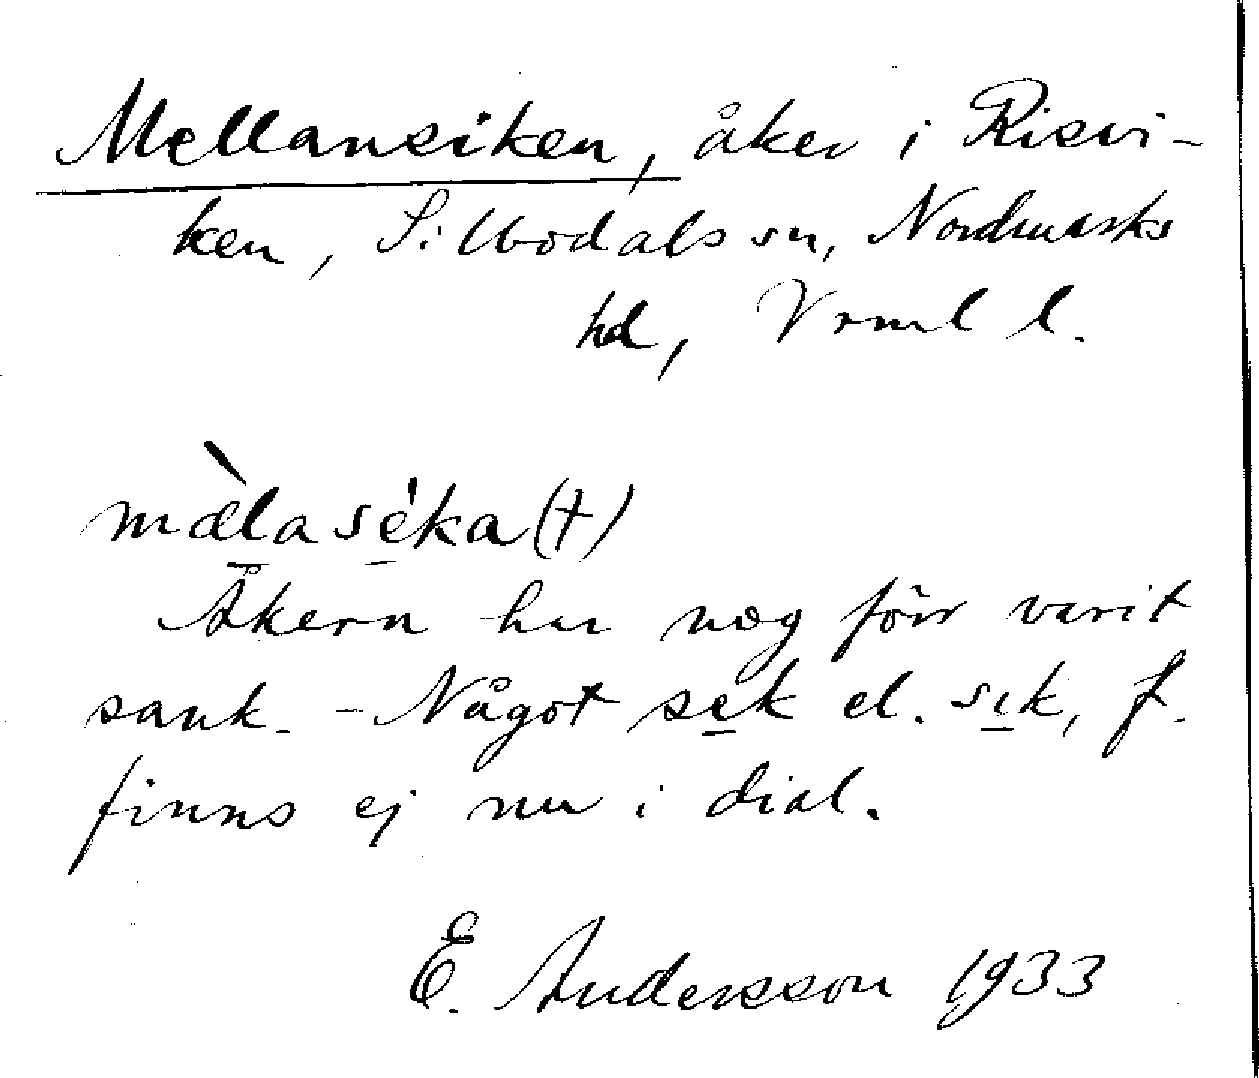 Mellansiken, åker i Risvi-
ken, Silbodals sn, Nordmarks
hd, Vrml l.
mæ̀lasèka (+)
Åkern har nog förr varit
sank. - Något sek el. sik, f.
finns ej nu i dial.
E. Andersson 1933